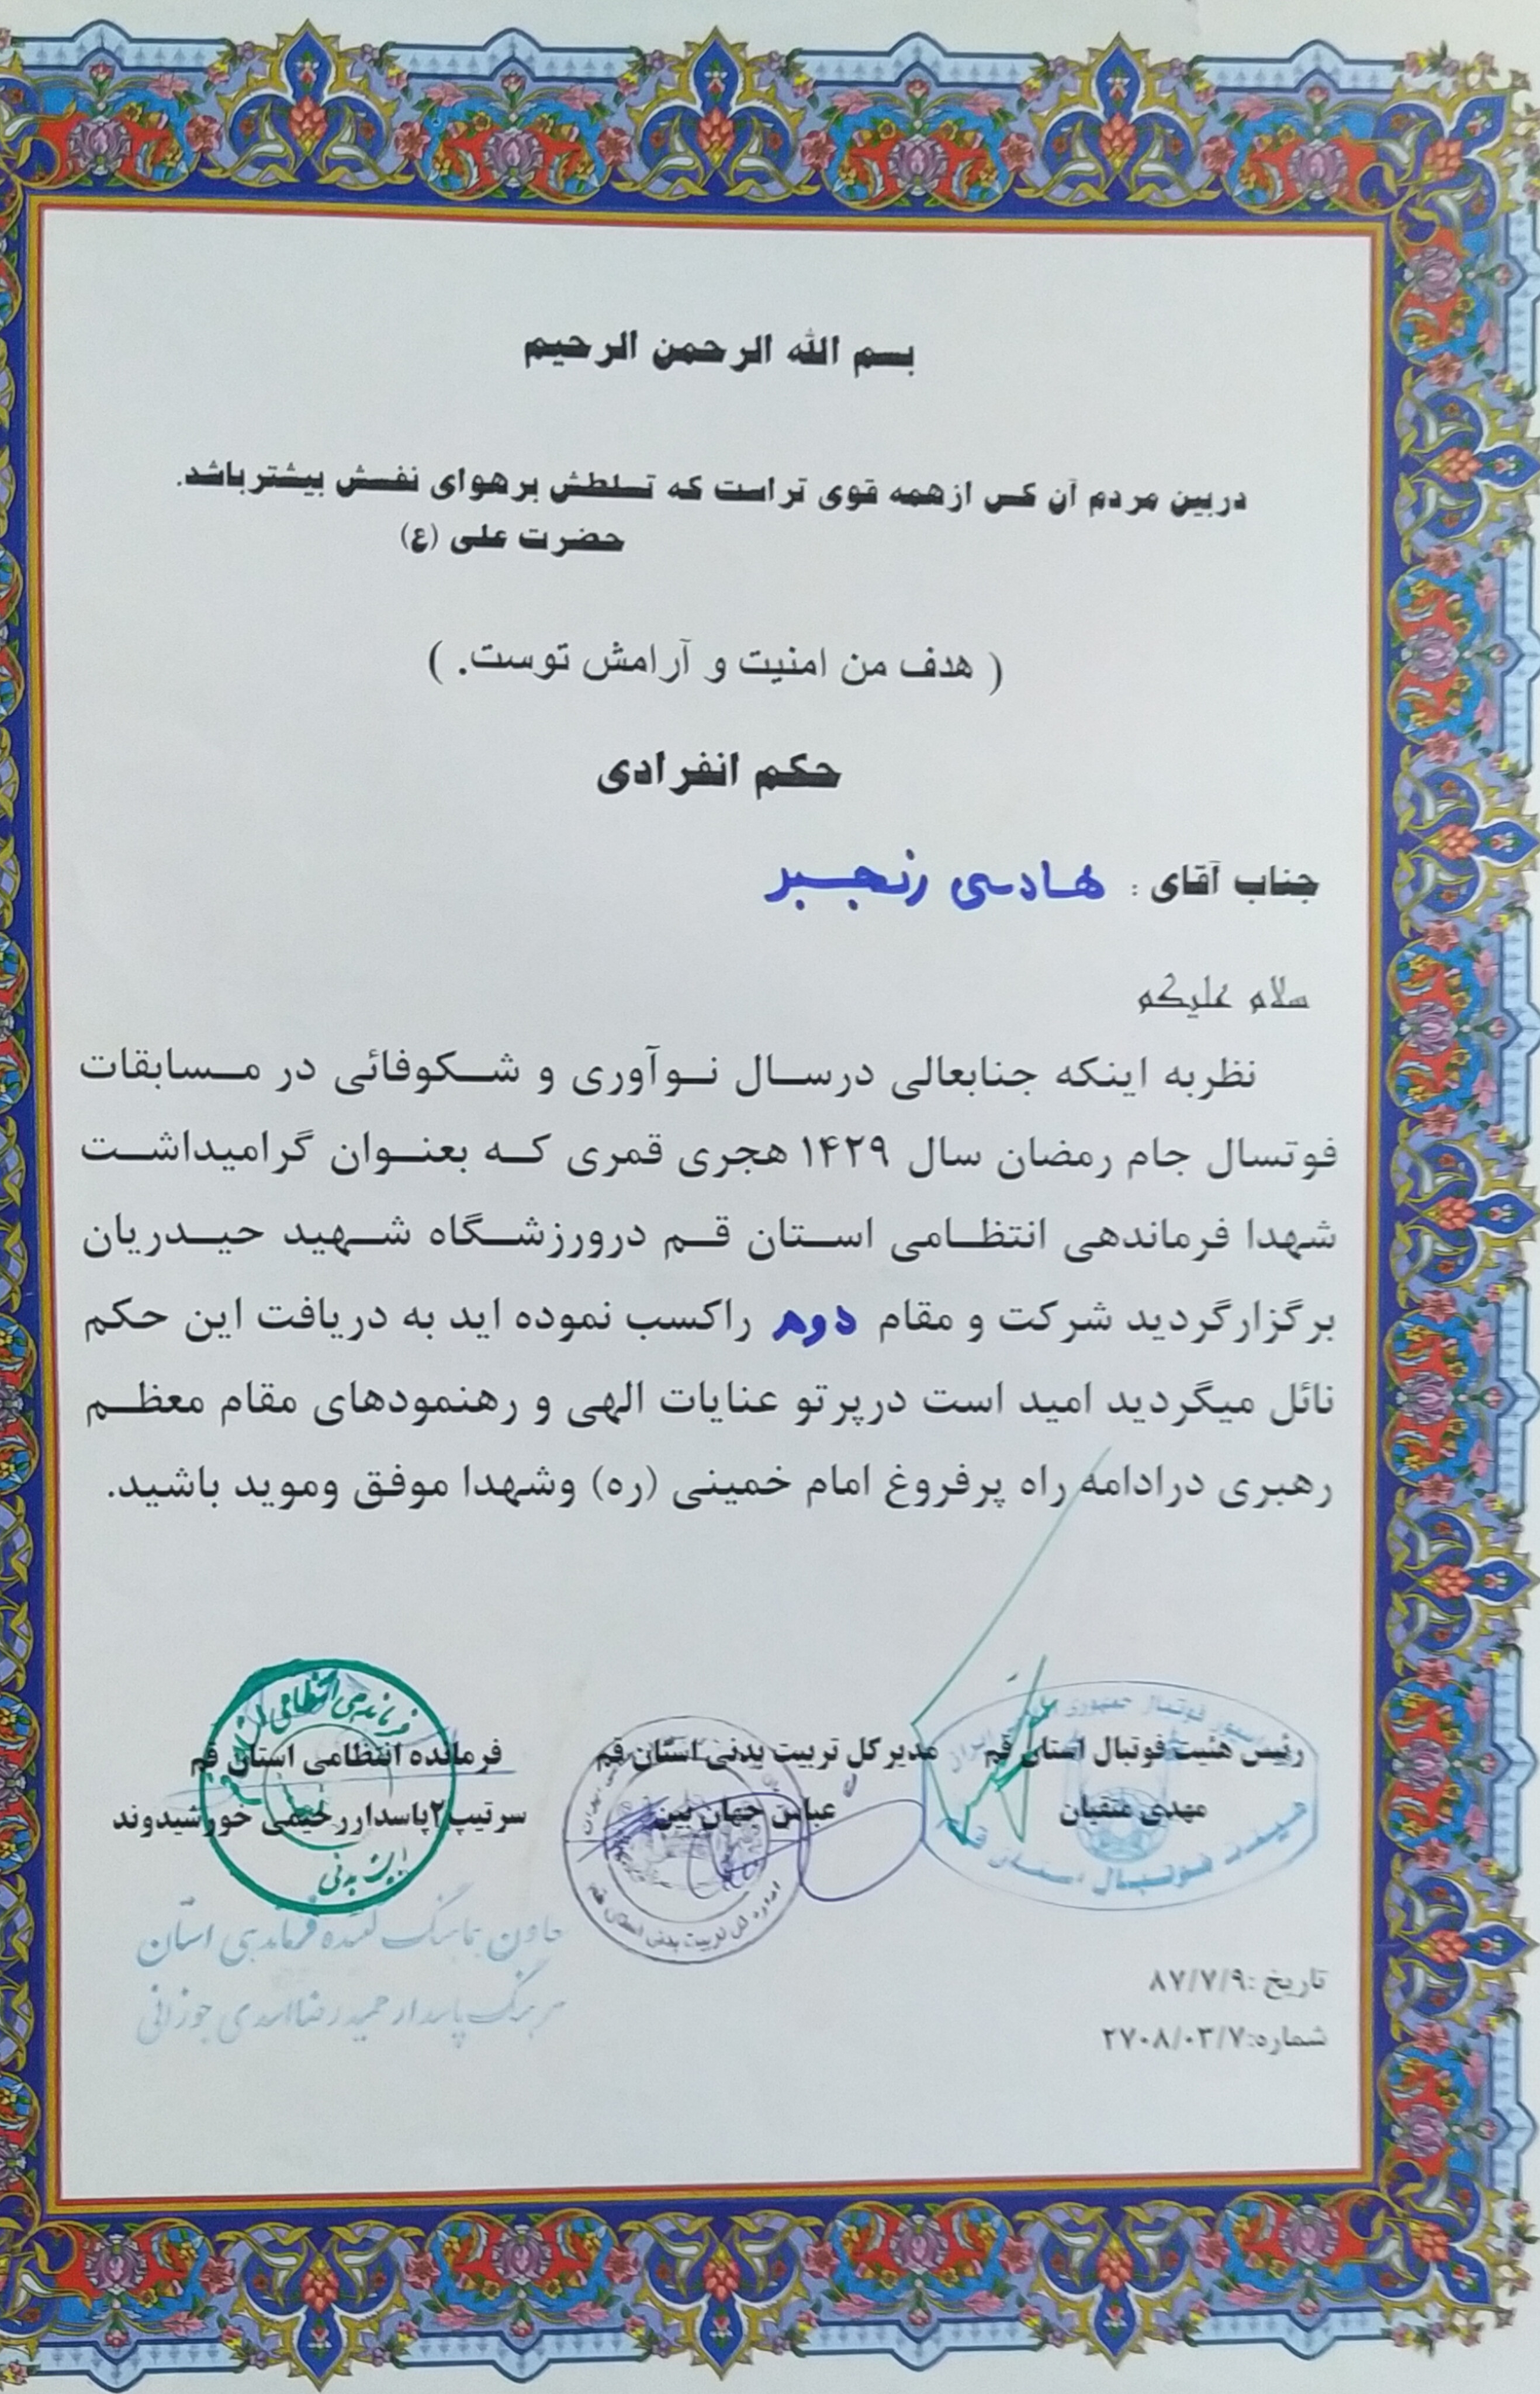 بسم الله الرحمن الرحیم
دربین مردم آن کس ازهمه قوی تراست که تسلطش برهوای نفسش بیشترباشد.
حضرت علی (ع)
( هدف من امنیت و آرامش توست. )
حکم انفرادی
جناب آقای : هادی رنجبر
سلام علیکم
نظربه اینکه جنابعالی درسال نوآوری و شکوفائی در مسابقات
فوتسال جام رمضان سال ۱۴۲۹ هجری قمری که بعنوان گرامیداشت
شهدا فرماندهی انتظامی استان قم درورزشگاه شهید حیدریان
برگزارگردید شرکت و مقام دوم راکسب نموده اید به دریافت این حکم
نائل میگردید امید است درپرتو عنایات الهی و رهنمودهای مقام معظم
رهبری درادامه راه پرفروغ امام خمینی (ره) وشهدا موفق وموید باشید.
رئیس هئیت فوتبال استان قم
مهدی متقیان
هیئت فوتبال استان قم
مدیرکل تربیت بدنی استان قم
عباس جهان بین
اداره کل تربیت بدنی استان قم
فرمانده انتظامی استان قم
سرتیپ۲پاسداررحیمی خورشیدوند
فرماندهی انتظامی
تربیت بدنی
معاون هماهنگ کننده فرماندهی استان
سرهنگ پاسدار حمیدرضا اسدی جوزانی
تاریخ :۸۷/۷/۹
شماره:۲۷۰۸/۰۳/۷